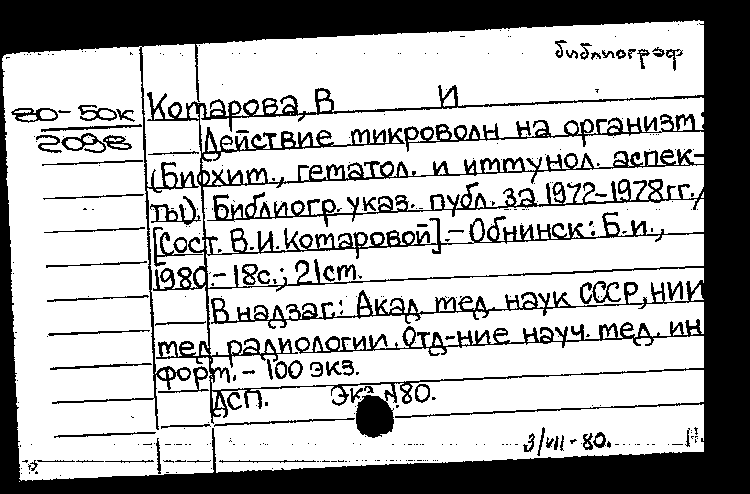 библиограф
80-50к
2098
Комарова, В И
Действие микроволн на организм:
(Биохим., гематол. и иммунол. аспек-
ты). Библиогр. указ. публ. за 1972-1978гг./
[Сост. В.И. Комаровой].- Обнинск: Б.и.,
1980.- 18с.; 21см.
В надзаг.: Акад. мед. наук СССР, НИИ
мед. радиологии. Отд-ние науч. мед. ин
форм. - 100 экз.
ДСП. Экз. №80.
3/VII-80.